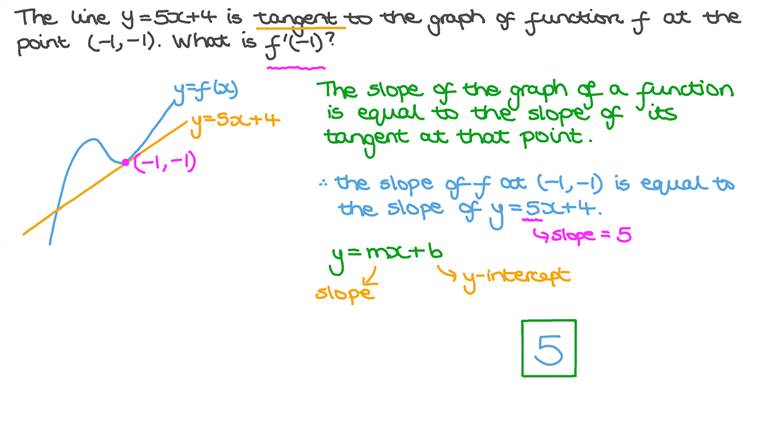 The line y=5x+4 is tangent to the graph of function f at the
point (-1,-1). What is f'(-1)?
y=f(x)
y=5x+4
(-1,-1)
The slope of the graph of a function
is equal to the slope of its
tangent at that point.
∴ the slope of f at (-1,-1) is equal to
the slope of y=5x+4.
↳slope=5
y=mx+b
slope
y-intercept
5